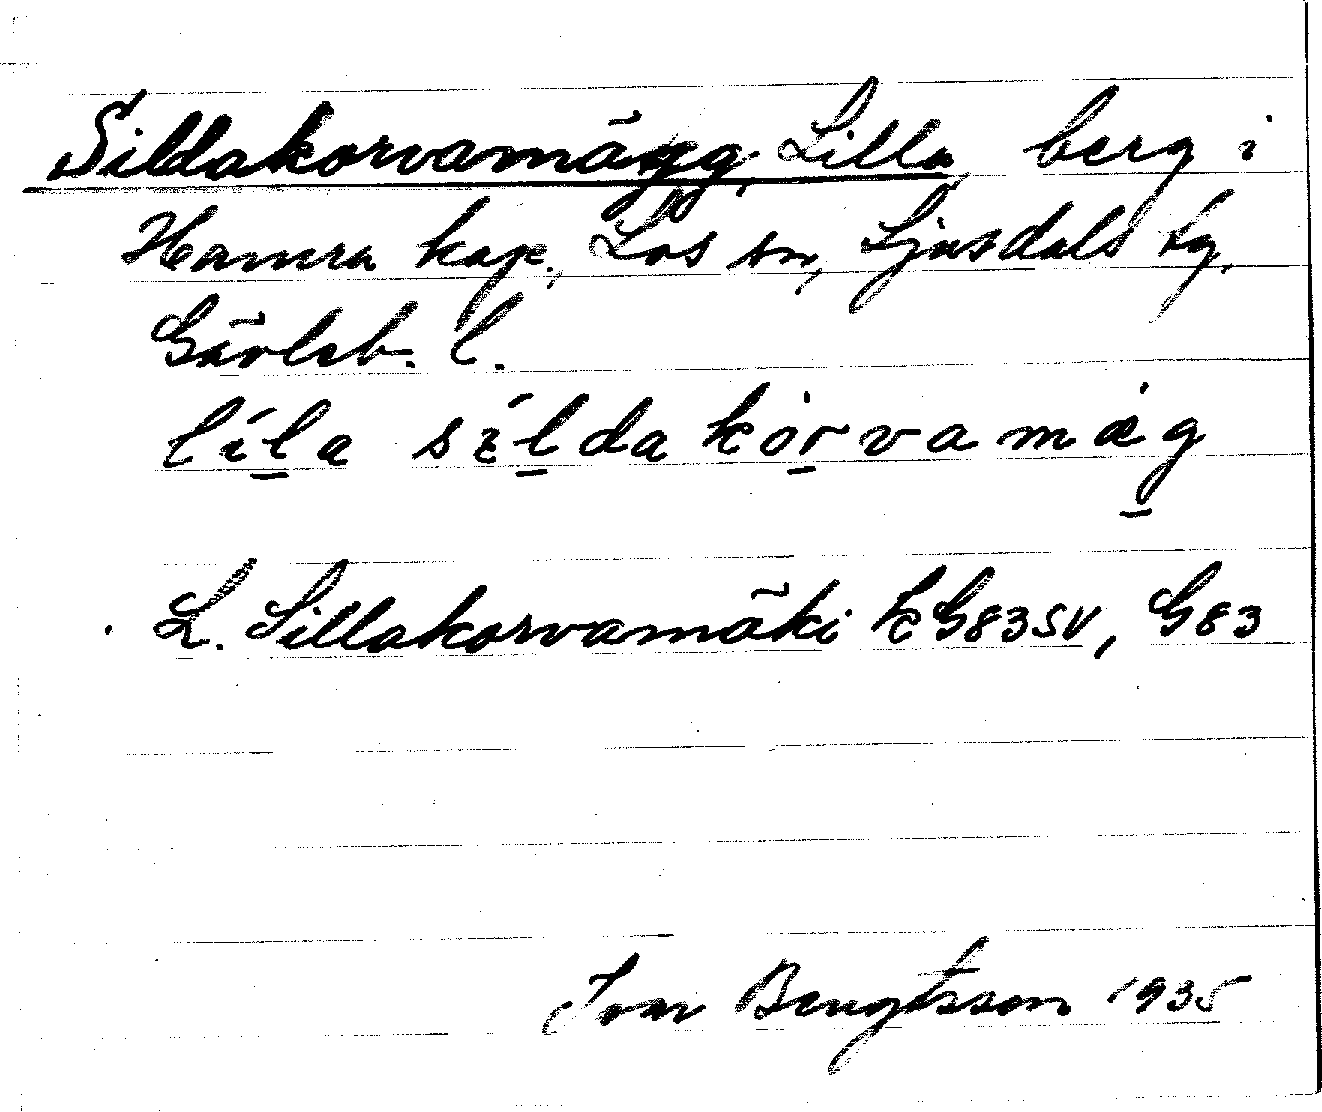 Sillakorvamägg, Lilla berg i
Hamra kap., Los sn, Ljusdals tg,
Gävleb. l.
líl̠a síl̠dakòr̠vamàg̠
L. Sillakorvamäki kG83SV, G83
Ivar Bengtsson 1935